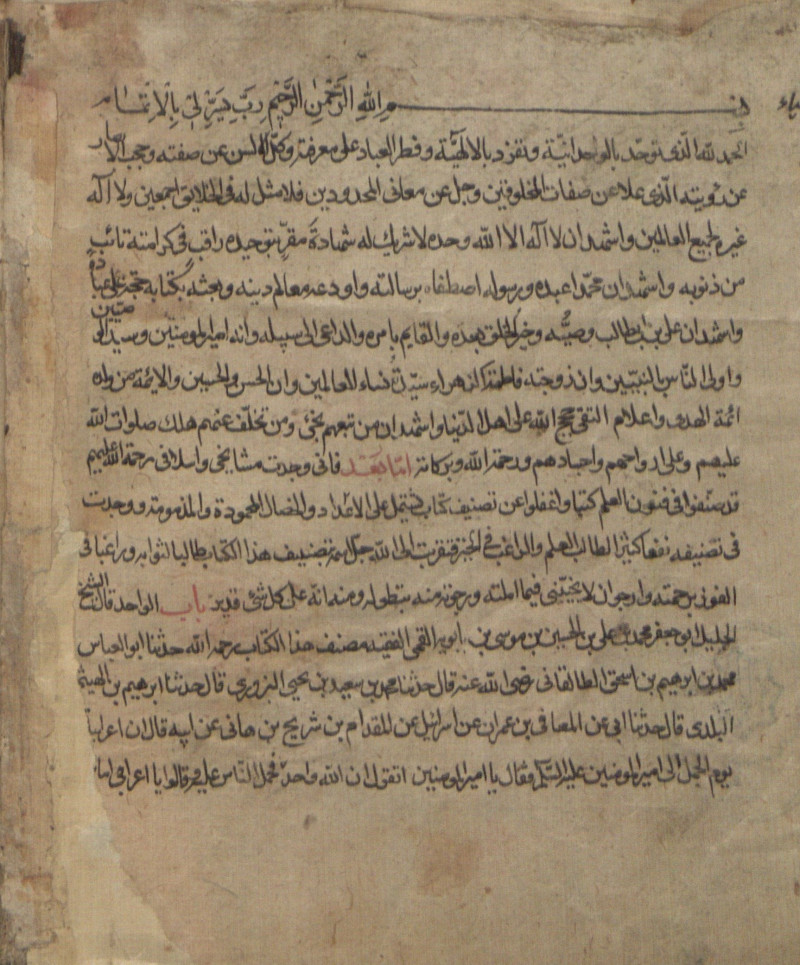 بسم الله الرحمن الرحيم رب يسر لي بالاتمام
الحمد لله الذى توحد بالوحدانية وتفرد بالالهية وفطر العباد على معرفته وكل الالسن عن صفته وحجب الابصار
عن رويته الذى علا عن صفات المخلوقين وجل عن معانى المحدودين فلا مثل له فى الخلايق اجمعين ولا اله
غيره لجميع العالمين واشهد ان لا اله الا الله وحده لا شريك له شهادة مقر بتوحيده راغب فى كرامته تائب
من ذنوبه واشهد ان محمدا عبده ورسوله اصطفاه برسالته واودعه معالم دينه وبعثه بكتابه حجة على عباده
واشهد ان على بن ابى طالب وصيه وخير الخلق بعده والقايم بامره والداعى الى سبيله وانه امير المومنين وسيد
واولى الناس بالنبيين وان زوجته فاطمة الزهراء سيدة نساء العالمين وان الحسن والحسين والايمة من ولده
ائمة الهدى واعلام التقى حجج الله على اهل الدنيا واشهد ان من تبعهم نجى ومن تخلف عنهم هلك صلوات الله
عليهم وعلى ارواحهم واجسادهم ورحمة الله وبركاته اما بعد فانى وجدت مشايخى واسلافى رحمة الله عليهم
قد صنفوا فى فنون العلم كتبا واغفلوا عن تصنيف كتاب يشتمل على الاعداد والخصال المحمودة والمذمومة ووجدت
فى تصنيفه نفعا كثيرا لطالب العلم والراغب فى الخير فتقربت الى الله جل اسمه بتصنيف هذا الكتاب طالبا لثوابه وراغبا فى
الفوز برحمته وارجو ان لا يخيبنى فيما املته ورجوته منه بتطوله ومنه انه على كل شئ قدير باب الواحد قال الشيخ
الجليل ابو جعفر محمد بن على بن الحسين بن موسى بن بابويه القمى الفقيه مصنف هذا الكتاب رحمه الله حدثنا ابو العباس
محمد بن ابرهيم بن اسحق الطالقانى رضى الله عنه قال حدثنا محمد بن سعيد بن يحيى البزورى قال حدثنا ابرهيم بن الهيثم
البلدى قال حدثنا ابى عن المعافى بن عمران عن اسرائيل عن المقدام بن شريح بن هانى عن ابيه قال ان اعرابيا
يوم الجمل الى امير المومنين عليه السلم فقال يا امير المومنين اتقول ان الله واحد فحمل الناس عليه وقالوا يا اعرابى اما